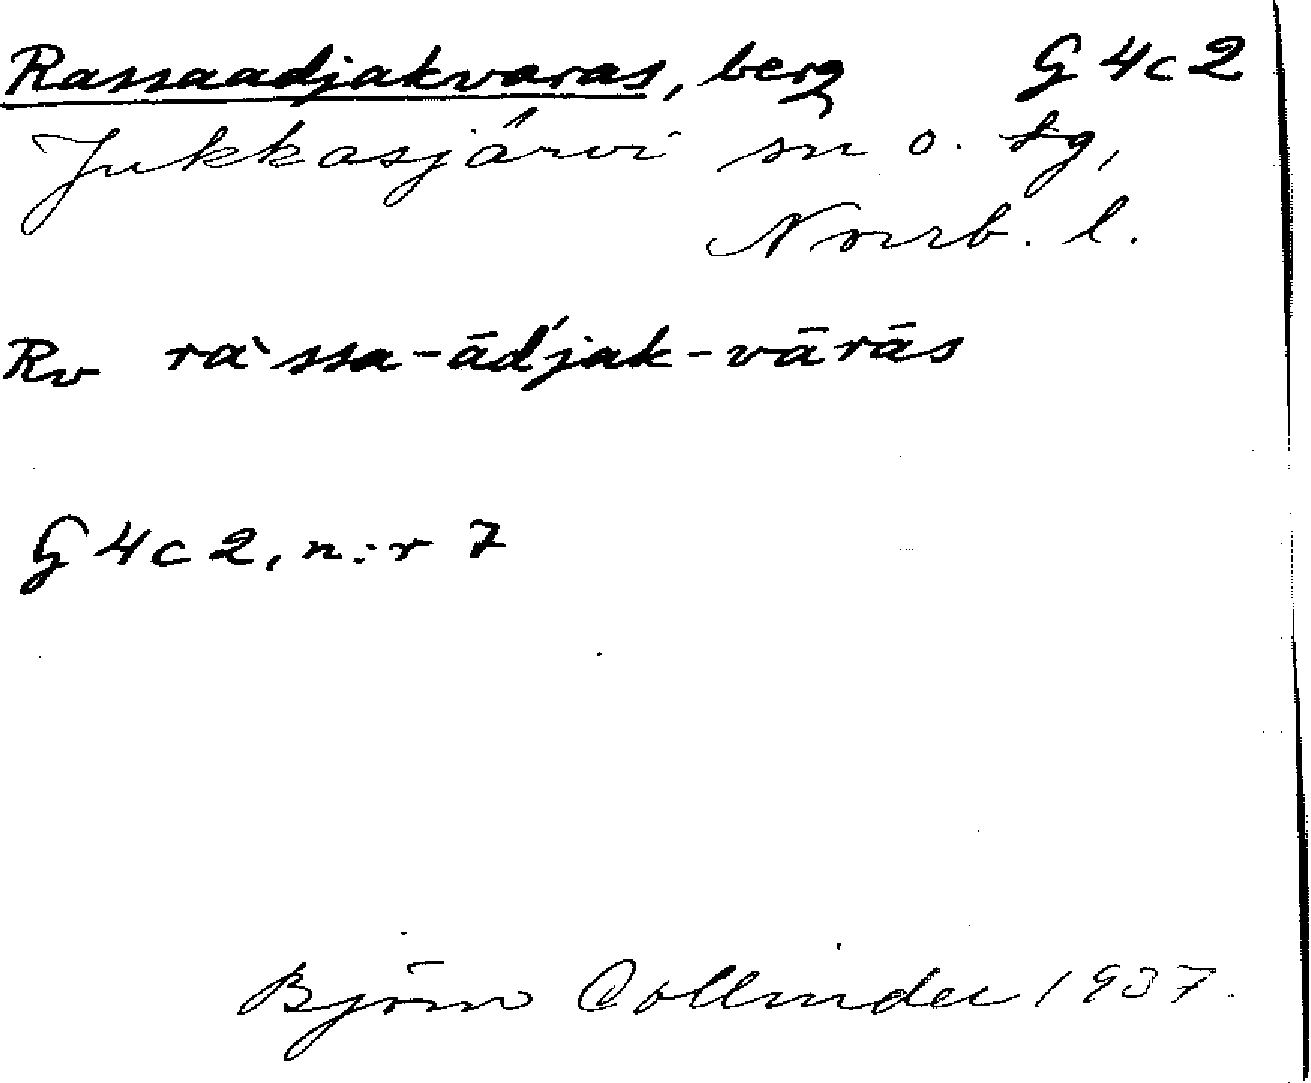 Rassaadjakvaras, berg G 4c2
Jukkasjärvi sn o. tg,
Norrb. l.
Rv ra`ssa-ād́jak-vārās
G 4c2, n:r 7
Björn Collinder 1937.